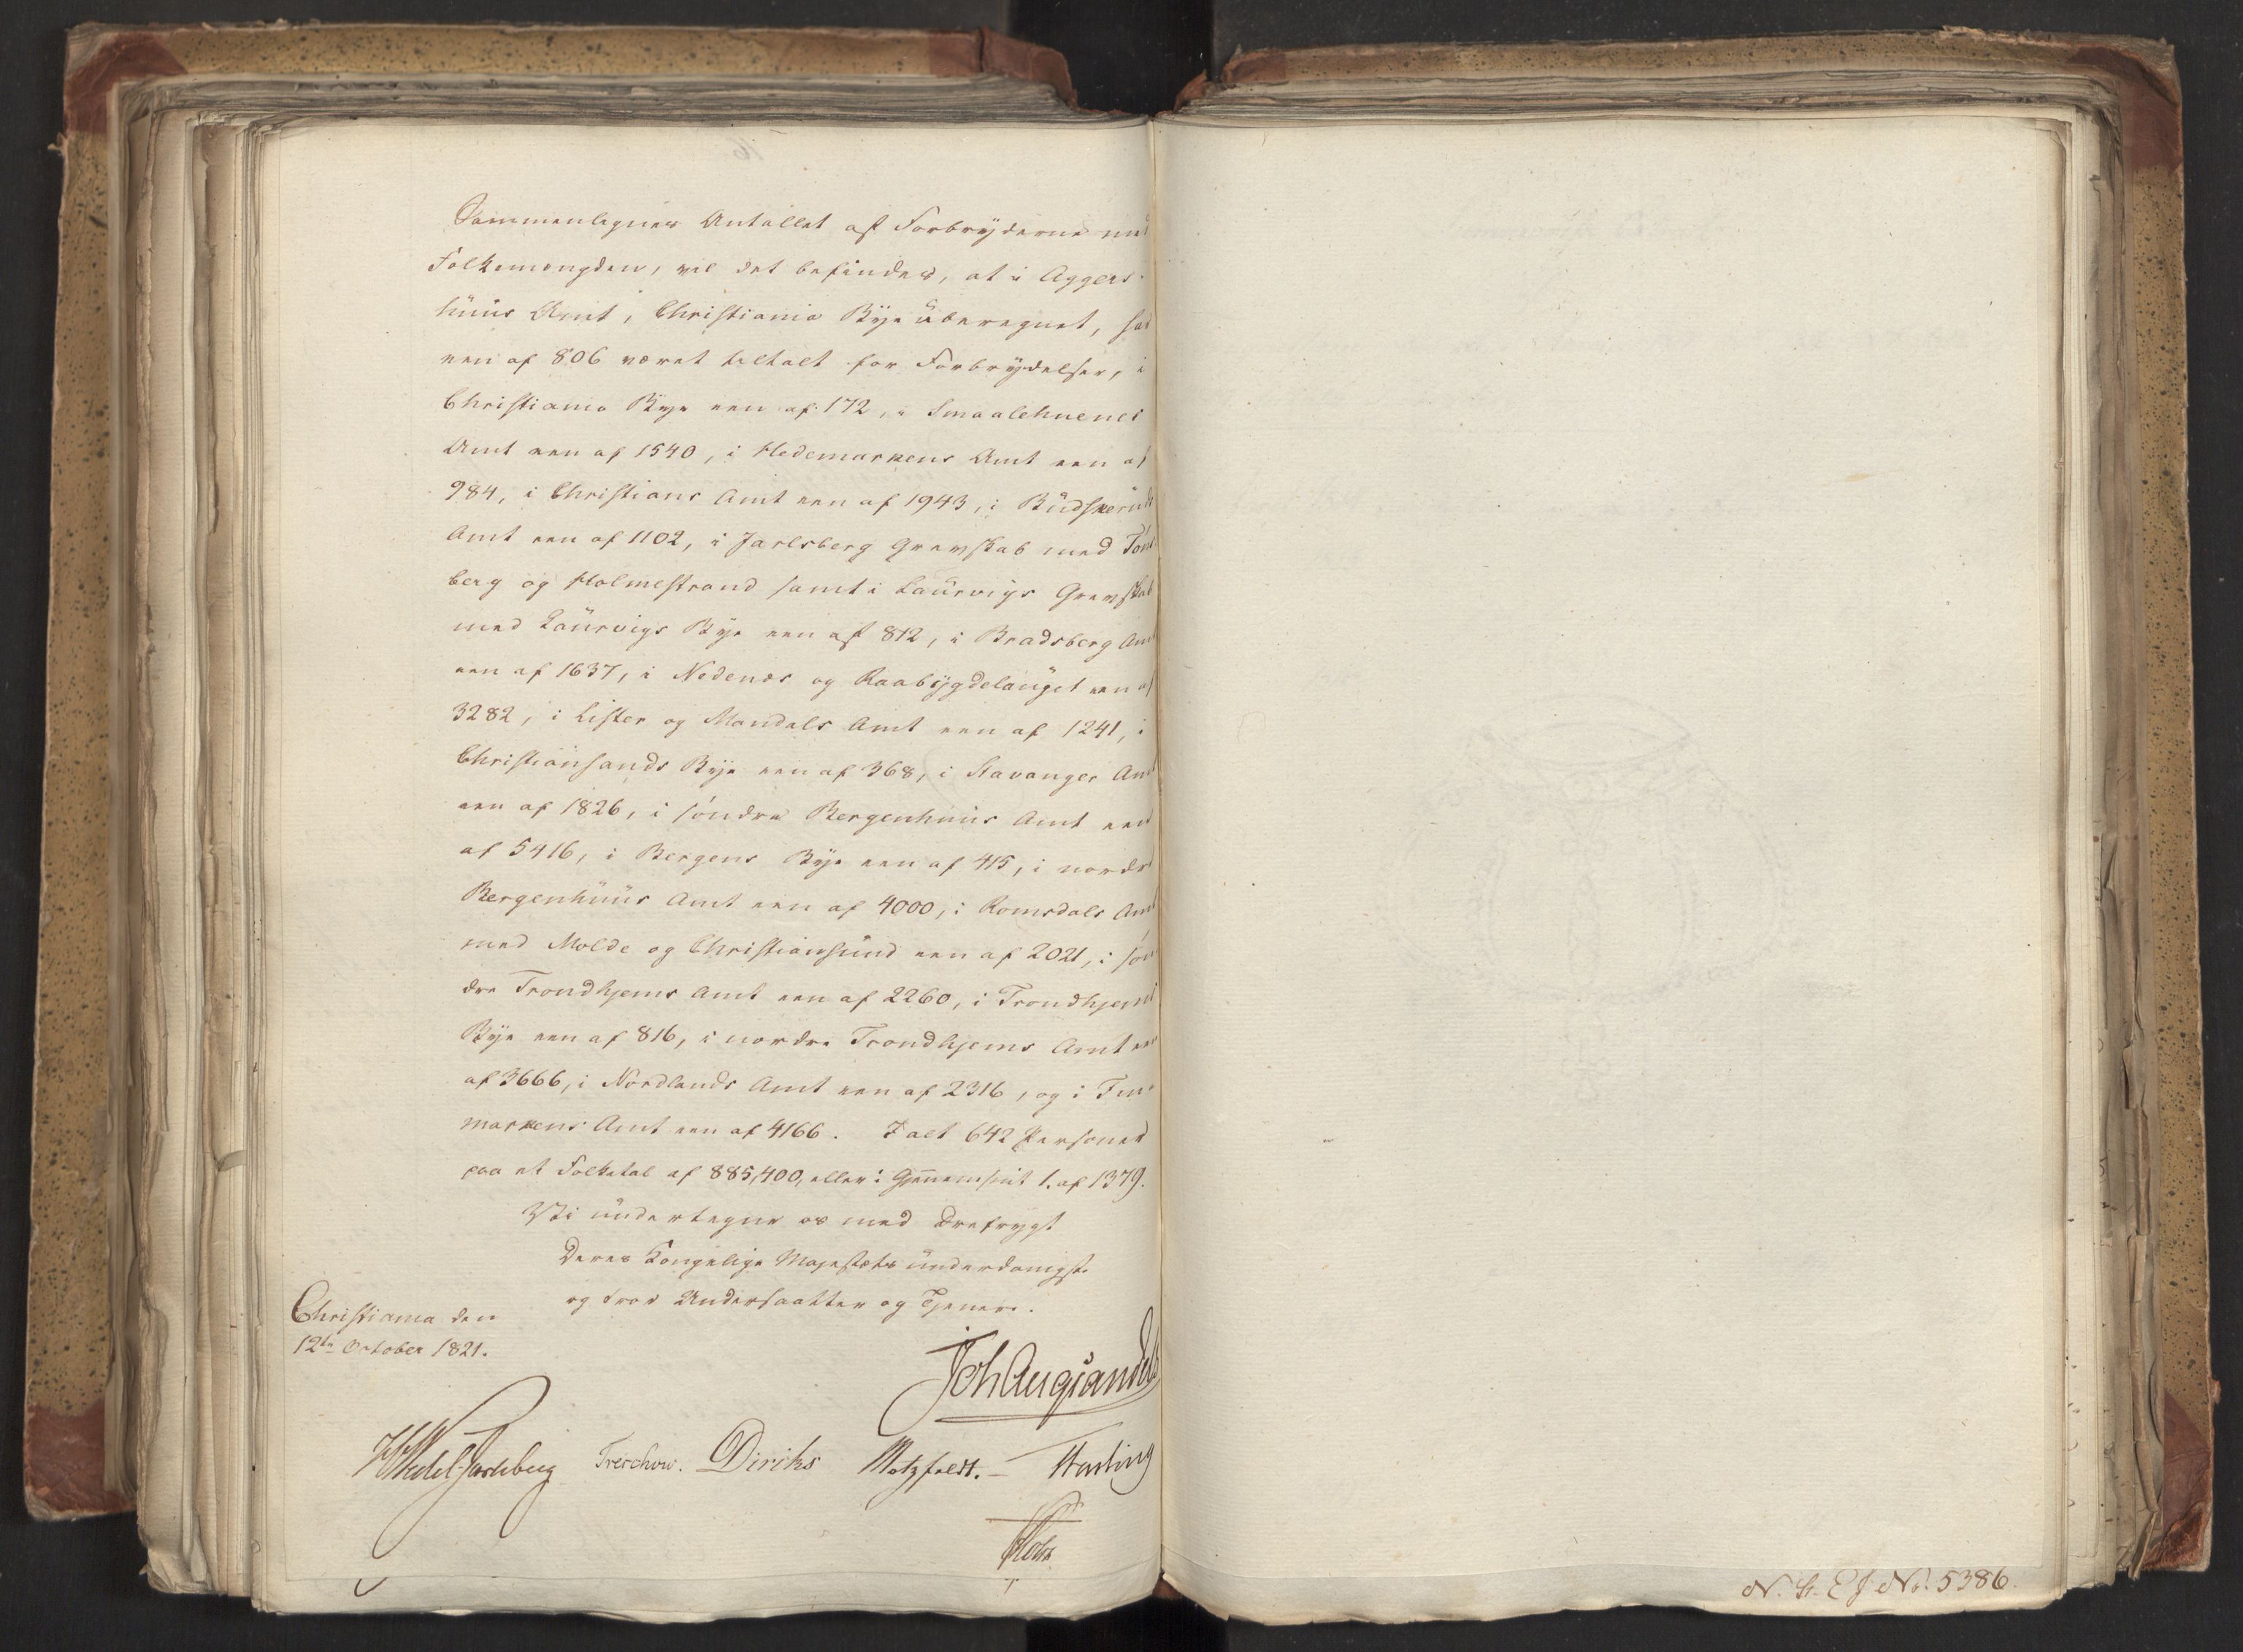 Sammenlignes Antallet af Forbryderne med
Folkemængden, vil det befindes, at i Aggers-
huus Amt, Christiania Bye uberegnet, har
een af 806 været tiltalt for Forbrydelser, i
Christiania Bye een af 172, i Smaalehnenes
Amt een af 1540, i Hedemarkens Amt een af
984, i Christians Amt een af 1943, i Budskeruds
Amt een af 1102, i Jarlsberg Grevskab med Tons-
berg og Holmestrand samt i Laurvigs Grevskab
med Laurvigs Bye een af 812, i Bradsberg Amt
een af 1637, i Nedenæs og Raabygdelauget een af
3282, i Lister og Mandals Amt een af 1241, i
Christiansands Bye een af 368, i Stavanger Amt
een af 1826, i söndre Bergenhuus Amt een
af 5416, i Bergens Bye een af 415, i nordre
Bergenhuus Amt een af 4000, i Romsdals Amt
med Molde og Christiansund een af 2021, i sön-
dre Trondhjems Amt een af 2260, i Trondhjems
Bye een af 816, i nordre Trondhjems Amt een
af 3666, i Nordlands Amt een af 2316, og i Fin-
markens Amt een af 4166. I alt 642 Personer
paa et Folketal af 885,400, eller i Gjennemsnit 1. af 1379.
Vi undertegne os med Ærefrygt
Deres Kongelige Majestæts underdanigste
og troe Undersaatter og Tjenere.
Christiania den
12te October 1821.
Joh Aug Sandels
HWedel Jarlsberg Treschow. Diriks Motzfeldt. Hasting
Holst
N. St. E J No. 5386.